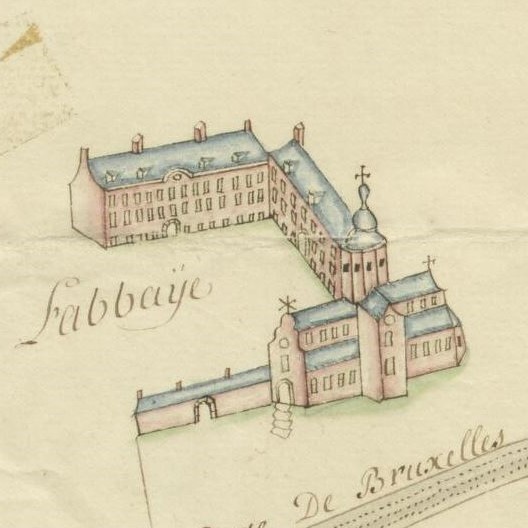 L'abbaÿe
De Bruxelles